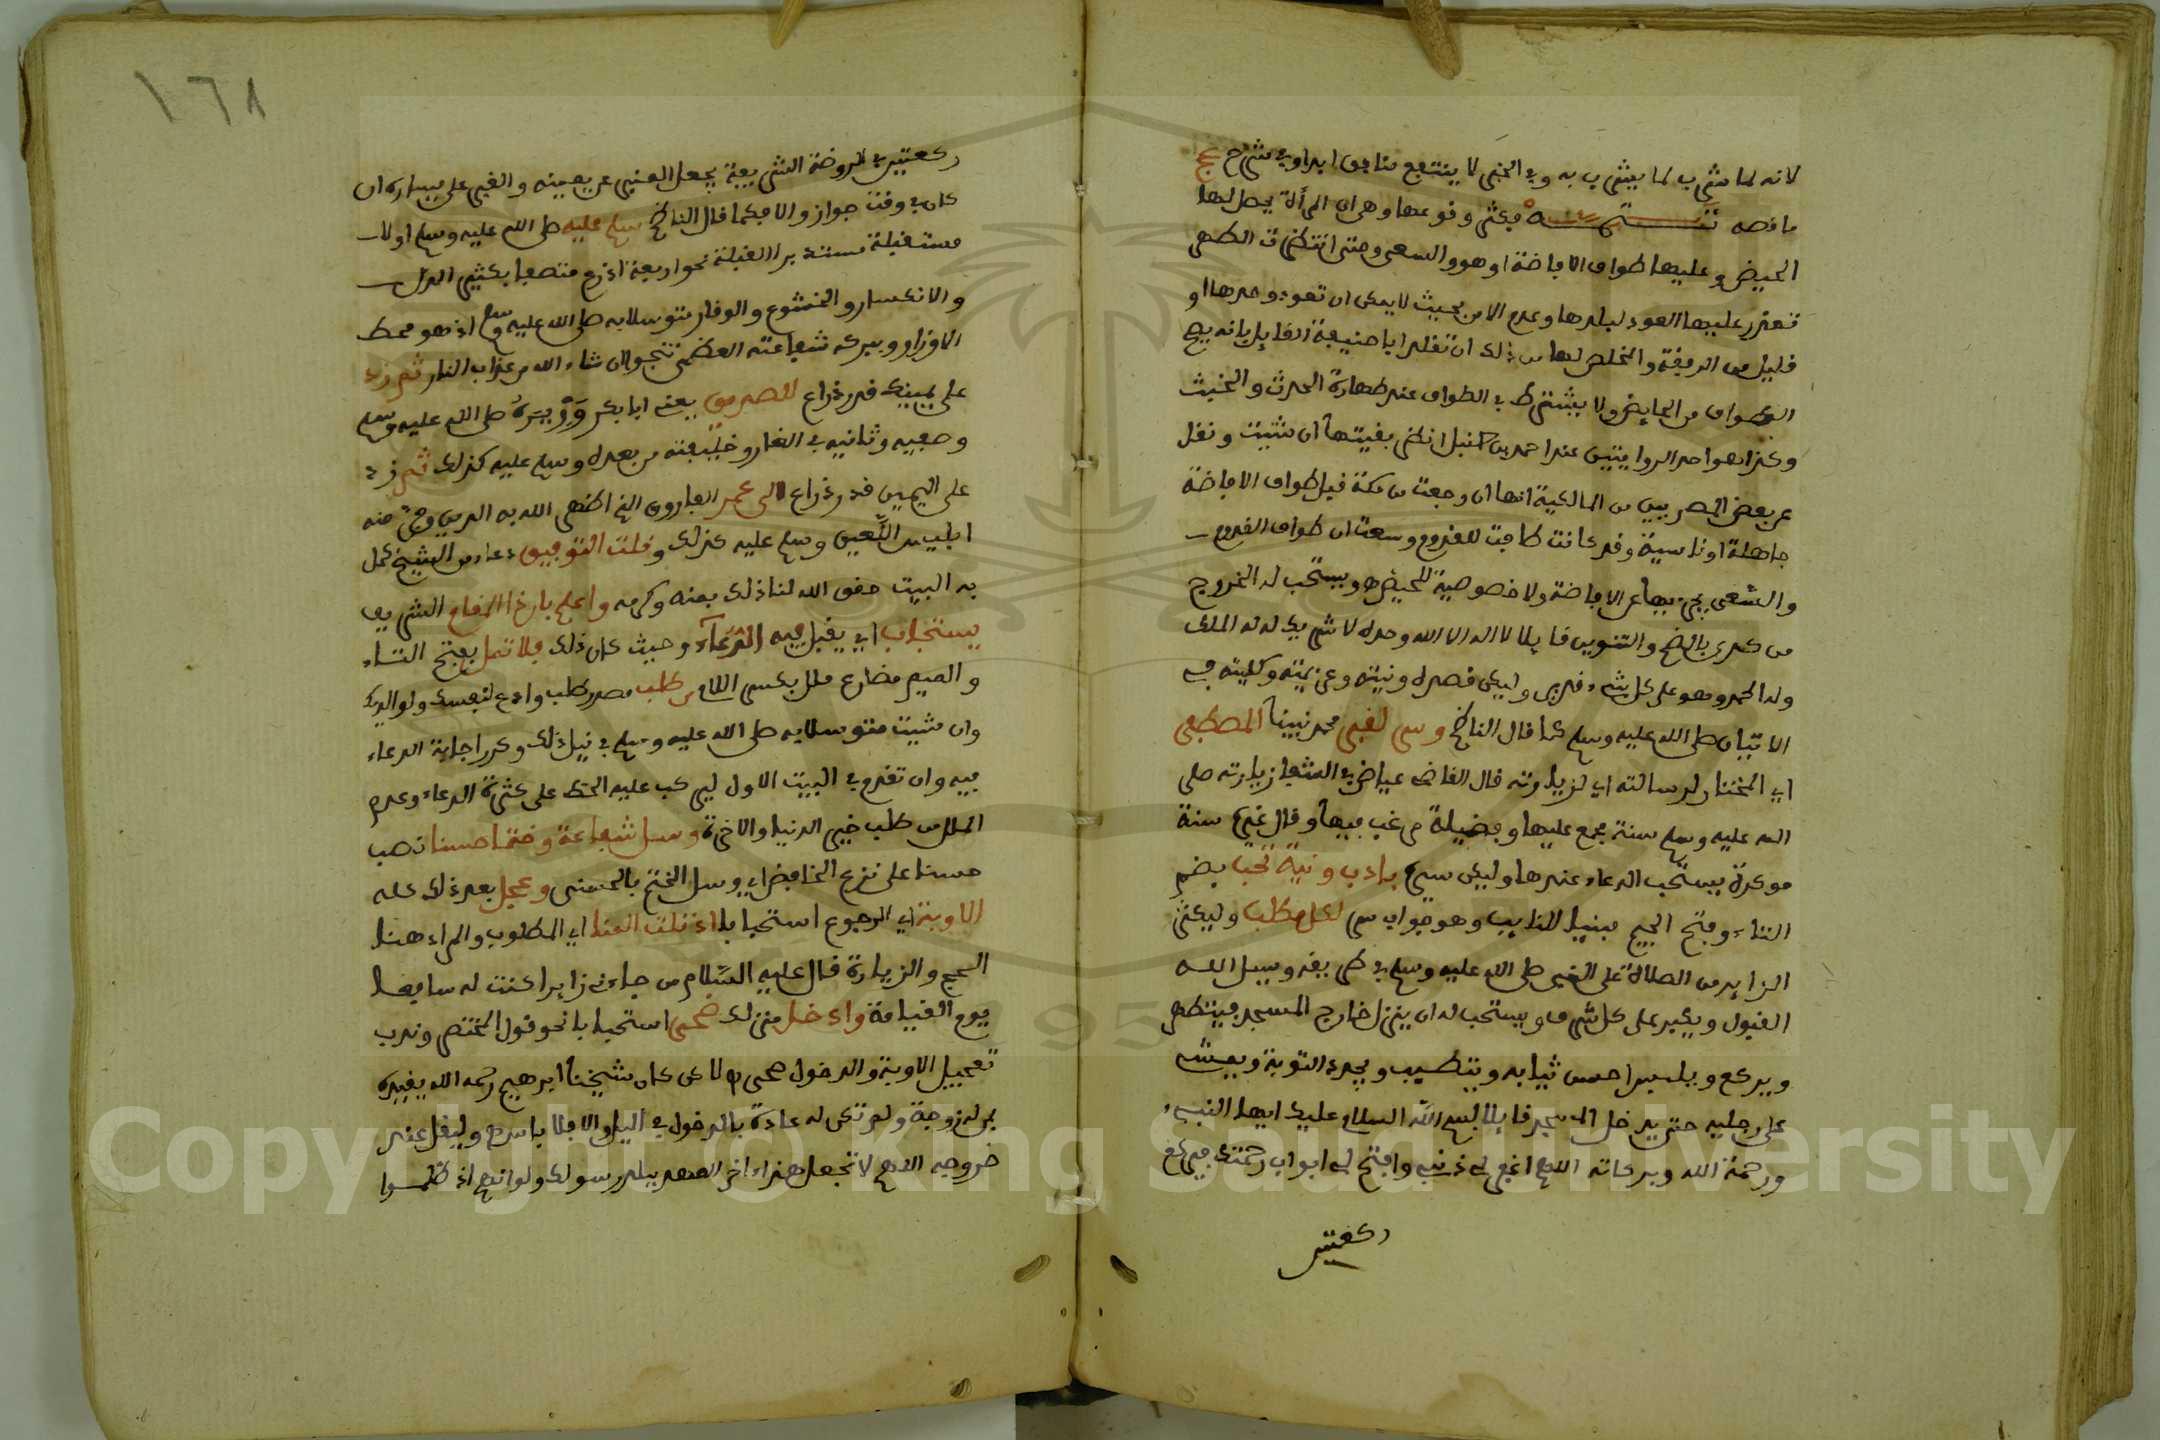 لانه لما شرب لما يشرب به وفي الخبر لا ينتفع منافق ابدا وفي شرح عج
ما نصه تتمة يكثر وقوعها وهي ان المرأة يحصل لها
الحيض وعليها طواف الافاضة او هو والسعي ومتى انتظرت الطهر
تعذر عليها العود لبلدها وعدم الامن بحيث لا يمكن ان تعود وحدها او
قليل من الرفقة والمخلص لها من ذلك ان تقلد ابا حنيفة القايل بانه يصح
الطواف من الحايض ولا يشترط في الطواف عنده طهارة الحدث والخبث
وكذا هو احد الروايتين عند احمد بن حنبل انظر بقيتها ان شئت ونقل
عن بعض المصريين من المالكية انها ان رجعت من مكة قبل طواف الافاضة
جاهلة او ناسية وقد كانت طافت للقدوم وسعت ان طواف القدوم
والسعي يجزيها عن الافاضة ولا خصوصية للحيض ويستحب له الخروج
من كدى بالضم والتنوين قايلا لا اله الا الله وحده لا شريك له له الملك
وله الحمد وهو على كل شيء قدير وليكن قصده ونيته وعزيمته وكليته في
الاتيان صلى الله عليه وسلم كما قال الناظم وسر لقبر محمد نبينا المصطفى
اي المختار لرسالته اي لزيارته قال القاضي عياض في الشفا زيارته صلى
الله عليه وسلم سنة مجمع عليها وفضيلة مرغب فيها وقال غيره سنة
موكدة يستحب الدعاء عندها وليكن سيره بادب ونية تجب بضم
التاء وفتح الجيم مبنيا للنايب وهو جواب سر لكل مطلب وليكثر
الزاير من الصلاة على النبي صلى الله عليه وسلم في طريقه ويسل الله
القبول ويكبر على كل شرف ويستحب له ان ينزل خارج المسجد فيتطهر
ويركع ويلبس احسن ثيابه ويتطيب ويجدد التوبة ويمشي
على رجليه حتى يدخل المسجد قايلا بسم الله السلام عليك ايها النبيء
ورحمة الله وبركاته اللهم اغفر لي ذنبي وافتح لي ابواب رحمتك فيركع
ركعتين
١٦٨
ركعتين في الروضة الشريفة يجعل المنبر عن يمينه والقبر على يساره ان
كان في وقت جواز والا فكما قال الناظم سلم عليه صلى الله عليه وسلم اولا
مستقبله مستدبرا القبلة نحو اربعة اذرع متصفا بكثير الذل
والانكسار والخشوع والوقار متوسلا به صلى الله عليه وسلم اذ هو محط
الاوزار وببركة شفاعته العظمى تنجو ان شاء الله من عذاب النار ثم زد
على يمينك قدر ذراع للصديق يعني ابا بكر وزيره صلى الله عليه وسلم
وصفيه وثانيه في الغار وخليفته من بعده وسلم عليه كذلك ثم زد
على اليمين قدر ذراع الى عمر الفاروق الذي اظهر الله به الدين وفر منه
ابليس اللعين وسلم عليه كذلك وقلت التوفيق دعاء من الشيخ كمل
به البيت حقق الله لنا ذلك بمنه وكرمه واعلم بان ذا المقام الشريف
يستجاب اي يقبل فيه الدعاء وحيث كان ذلك فلا تمل بفتح التاء
والميم مضارع ملل بكسر اللام من طلب مصدر طلب وادع لنفسك ولوالديك
ومن شيت متوسلا به صلى الله عليه وسلم في نيل ذلك وكرر اجابة الدعاء
فيه وان تقدم في البيت الاول ليركب عليه الحظ على كثرة الدعاء وعدم
الملل من طلب خيري الدنيا والاخرة وسل شفاعة وختما حسنا نصب
حسنا على نزع الخافض اي وسل الختم بالحسنى وعجل بعد ذلك كله
الاوبة اي الرجوع استحبابا اذ نلت المنا اي المطلوب والمراد هنا
الحج والزيارة قال عليه السلام من جاءني زايرا كنت له شافعا
يوم القيامة وادخل منزلك ضحى استحبابا نحو قول المختصر وندب
تعجيل الاوبة والدخول ضحى لاكن كان شيخنا ابراهيم رحمه الله يقيده
بمن له زوجة ولم تكن له عادة بالدخول في اليل والا فلا باس به وليقل عند
خروجه اللهم لا تجعل هذا اخر العهد ببلد رسولك ولو انهم اذ ظلموا